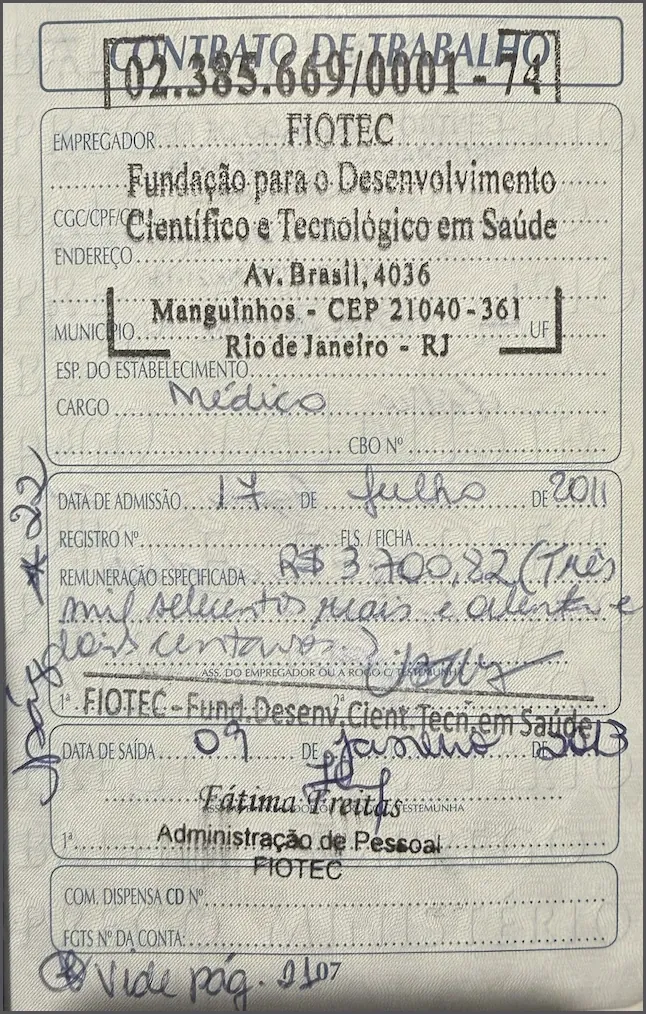 CONTRATO DE TRABALHO
02.385.669/0001-74
EMPREGADOR
FIOTEC
Fundação para o Desenvolvimento
CGC/CPF/
Científico e Tecnológico em Saúde
ENDEREÇO
Av. Brasil, 4036
Manguinhos - CEP 21040-361
MUNICÍPIO UF
Rio de Janeiro - RJ
ESP. DO ESTABELECIMENTO
CARGO Médico
CBO Nº
DATA DE ADMISSÃO 17 DE Julho DE 2011
REGISTRO Nº FLS. / FICHA
REMUNERAÇÃO ESPECIFICADA R$ 3.700,82 (Três
mil setecentos reais e oitenta e
dois centavos)
ASS. DO EMPREGADOR OU A ROGO C/ TESTEMUNHA
1ª 2ª
FIOTEC - Fund. Desenv. Cient. Tecn. em Saúde
DATA DE SAÍDA 09 DE Janeiro DE 2013
Fátima Freitas
TESTEMUNHA
1ª
Administração de Pessoal
FIOTEC
COM. DISPENSA CD Nº
FGTS Nº DA CONTA:
Vide pág.
07